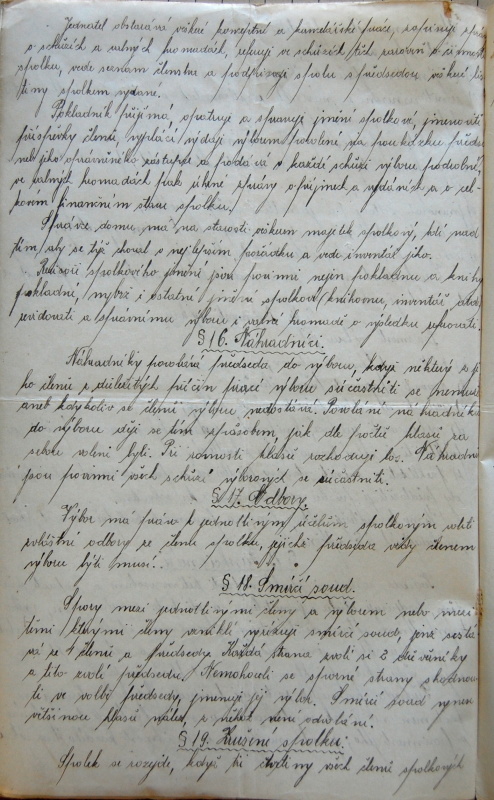 Jednatel obstarává veškeré konceptní a kancelářské práce, zapisuje
o schůzích a valných hromadách, referuje ve schůzích těch zároveň o činnosti
spolku, vede seznam členstva a podpisuje spolu s předsedou veškeré lis
tiny spolkem vydané.
Pokladník přijímá, opatruje a spravuje jmění spolkové, jmenovitě
příspěvky členů, vyplácí výdaje výborem povolené na poukázku předsedy
neb jeho oprávněného zástupce a podává v každé schůzi výboru podrobné,
ve valných hromadách pak úhrné zprávy o příjmech a vydáních a o cel-
kovém finančním stavu spolku.
Správce domu, má na starosti veškeren majetek spolkový, bdí nad
tím, aby se týž choval v nejlepším pořádku a vede inventář jeho.
Revisoři spolkového jmění jsou povinni nejen pokladnu a knihy
pokladní, nýbrž i ostatní jmění spolkové (knihovnu, inventář atd.)
revidovati a správnímu výboru i valné hromadě o výsledku referovati.
§ 16. Náhradníci.
Náhradníky povolává předseda do výboru, když některý z je
ho členů z důležitých příčin prací výboru súčastniti se nemůže
aneb kdykoliv se členů výboru nedostává. Povolání náhradníků
do výboru děje se tím způsobem, jak dle počtu hlasů za
sebou voleni byli. Při rovnosti hlasů rozhoduje los. Náhradníci
jsou povinni všech schůzí výborových se súčastniti.
§ 17. Odbory.
Výbor má právo k jednotlivým účelům spolkovým voliti
zvláštní odbory ze členů spolku, jejichž předseda vždy členem
výboru býti musí.
§ 18. Smírčí soud.
Spory mezi jednotlivými členy a výborem nebo mezi
těmi kterými členy vzniklé vyřizuje smírčí soud, jenž sestá
vá ze 4 členů a předsedy. Každá strana zvolí si 2 důvěrníky
a tito zvolí předsedu. Nemohou-li se sporné strany shodnou
ti ve volbě předsedy, jmenuje jej výbor. Smírčí soud vynese
většinou hlasů nález, z něhož není odvolání.
§ 19. Zrušení spolku.
Spolek se rozejde, když tři čtvrtiny všech členů spolkových